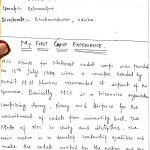 Group:- Berhampur
Directorate:- Bhubaneswar, odisha
My First Camp Experience.
NCC stands for National cadet corps was founded
on 15th July 1948 when a committee headed by
Pandit H.N. Kunzru recommended it report of the
governor. Basically NCC is a tri-service organisation
comprising Army, Navy and Airforce for the
recruitment of cadets from university level. The
Motto of NCC is Unity and discipline. The
main motive is to develop leadership qualities and
make the cadets useful for the nation and the